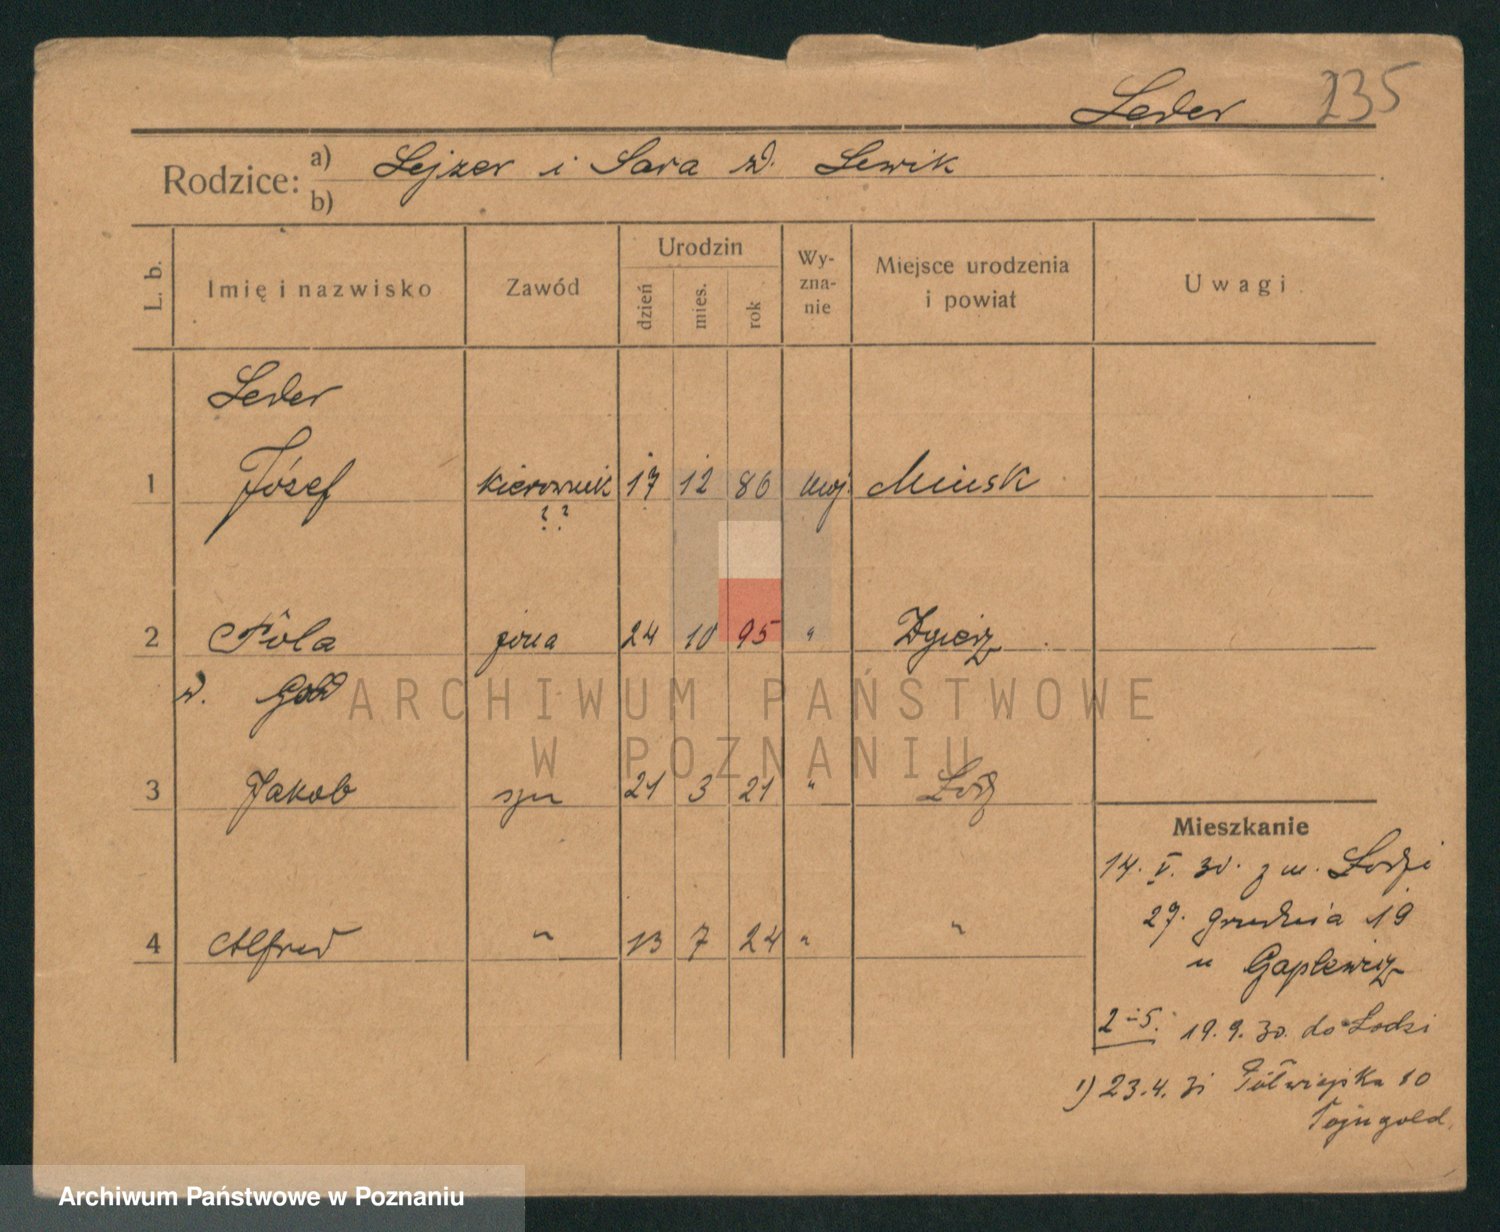 Leder 235
Rodzice: a) Lejzer i Sara z d. Lewik
b)
L. b. Imię i nazwisko Zawód Urodzin dzień mies. rok Wyznanie Miejsce urodzenia i powiat Uwagi
Leder
1 Józef kierownik 17 12 86 mojż Mińsk
? ?
2 Pola żona 24 10 95 " Zgierz
d. Gold
3 Jakob syn 21 3 21 " Łódź
4 Alfred " 13 7 24 " "
ARCHIWUM PAŃSTWOWE
W POZNANIU
Mieszkanie
14. V. 30. z m. Łodzi
27. grudnia 19
u
2-5. 19.9.30. do Łodzi
1) 23.4.31 Półwiejska 10
Fajngold
Archiwum Państwowe w Poznaniu